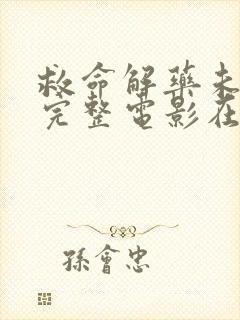 救命解藥未
完整電影在
孫會忠